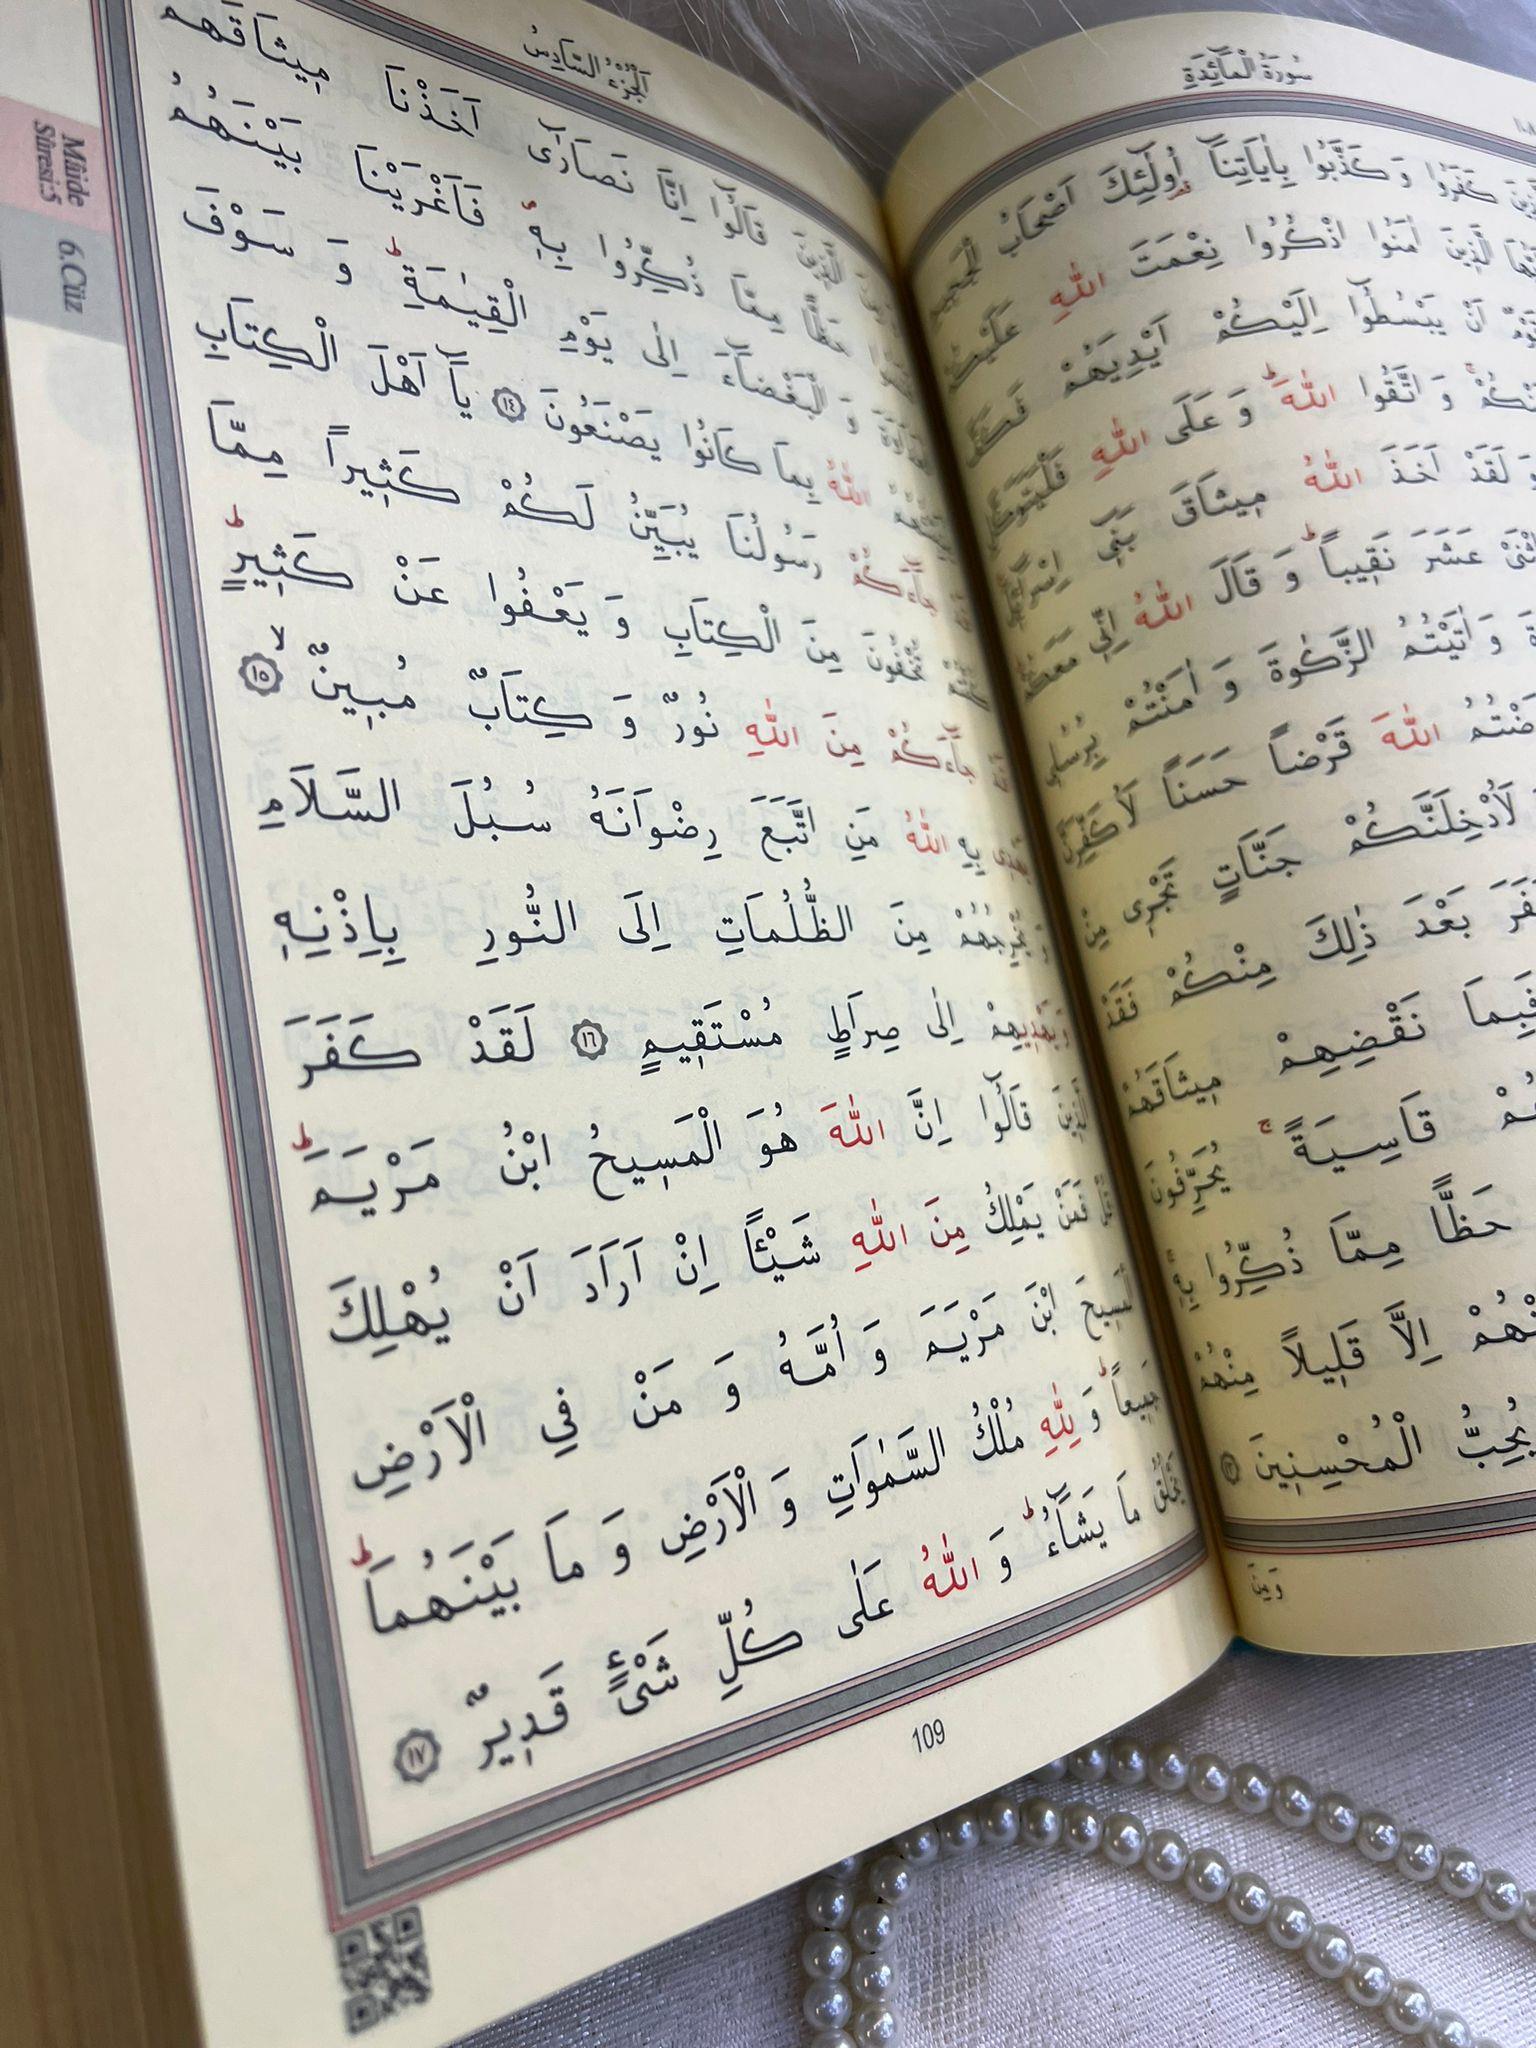 سُورَةُ الْمَٓائِدَةِ
كَفَرُوا وَ كَذَّبُوا بِاٰيَاتِنَٓا اُو۬لٰٓئِكَ اَصْحَابُ الْجَحِيمِ
الَّذِينَ اٰمَنُوا اذْكُرُوا نِعْمَتَ اللّٰهِ عَلَيْكُمْ
اَنْ يَبْسُطُٓوا اِلَيْكُمْ اَيْدِيَهُمْ فَكَفَّ
وَ اتَّقُوا اللّٰهَ ۜ وَ عَلَى اللّٰهِ فَلْيَتَوَكَّلِ
وَ لَقَدْ اَخَذَ اللّٰهُ مِيثَاقَ بَنِٓي
عَشَرَ نَقِيباً ۜ وَ قَالَ اللّٰهُ اِنِّي مَعَكُمْ
وَ اٰتَيْتُمُ الزَّكٰوةَ وَ اٰمَنْتُمْ بِرُسُلِي
اللّٰهَ قَرْضاً حَسَنًا لَاُكَفِّرَنَّ
لَاُدْخِلَنَّكُمْ جَنَّاتٍ تَجْرِي مِنْ
بَعْدَ ذٰلِكَ مِنْكُمْ فَقَدْ
فَبِمَا نَقْضِهِمْ مِيثَاقَهُمْ
قَاسِيَةً ۚ يُحَرِّفُونَ
حَظًّا مِمَّا ذُكِّرُوا بِهِ
اِلَّا قَلِيلاً مِنْهُمْ
يُحِبُّ الْمُحْسِنِينَ ١٣
وَمِنَ
اَلْجُزْءُ السَّادِسُ
الَّذِينَ قَالُٓوا اِنَّا نَصَارٰٓى اَخَذْنَا مِيثَاقَهُمْ
حَظًّا مِمَّا ذُكِّرُوا بِهِ فَاَغْرَيْنَا بَيْنَهُمُ
وَ الْبَغْضَٓاءَ اِلٰى يَوْمِ الْقِيٰمَةِ ۜ وَ سَوْفَ
اللّٰهُ بِمَا كَانُوا يَصْنَعُونَ ١٤ يَٓا اَهْلَ الْكِتَابِ
جَٓاءَكُمْ رَسُولُنَا يُبَيِّنُ لَكُمْ كَثِيراً مِمَّا
تُخْفُونَ مِنَ الْكِتَابِ وَ يَعْفُوا عَنْ كَثِيرٍ ۜ
جَٓاءَكُمْ مِنَ اللّٰهِ نُورٌ وَ كِتَابٌ مُبِينٌ ۙ ١٥
يَهْدِي بِهِ اللّٰهُ مَنِ اتَّبَعَ رِضْوَانَهُ سُبُلَ السَّلَامِ
يُخْرِجُهُمْ مِنَ الظُّلُمَاتِ اِلَى النُّورِ بِاِذْنِهِ
وَيَهْدِيهِمْ اِلٰى صِرَاطٍ مُسْتَقِيمٍ ١٦ لَقَدْ كَفَرَ
الَّذِينَ قَالُٓوا اِنَّ اللّٰهَ هُوَ الْمَسِيحُ ابْنُ مَرْيَمَ ۜ
فَمَنْ يَمْلِكُ مِنَ اللّٰهِ شَيْـًٔا اِنْ اَرَادَ اَنْ يُهْلِكَ
الْمَسِيحَ ابْنَ مَرْيَمَ وَ اُمَّهُ وَ مَنْ فِي الْاَرْضِ
جَمِيعاً ۜ وَ لِلّٰهِ مُلْكُ السَّمٰوَاتِ وَ الْاَرْضِ وَ مَا بَيْنَهُمَا ۜ
يَخْلُقُ مَا يَشَٓاءُ ۜ وَ اللّٰهُ عَلٰى كُلِّ شَيْءٍ قَدِيرٌ ١٧
109
Mâide
Sûresi:5
6.Cüz